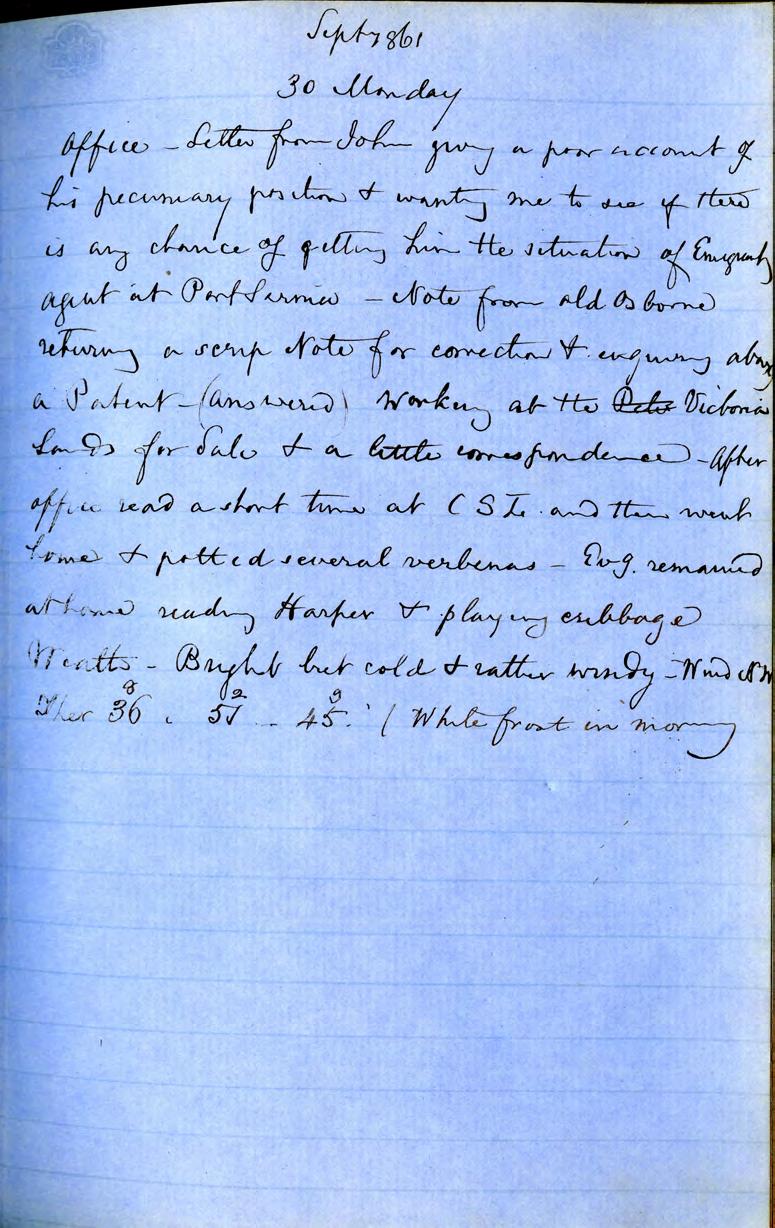 Sept 1861
30 Monday
Office - Letter from John giving a poor account of
his pecuniary position & wanting me to see if there
is any chance of getting him the situation of Emigrant
agent at Port Sarnia - Note from old Osborne
returning a scrip Note for correction & enquiring about
a Patent - (answered) Working at the Victoria
Lands for Sale & a little correspondence - After
office read a short time at C S L. and then went
home & potted several verbenas - Evg. remained
at home reading Harper & playing cribbage
Weather - Bright but cold & rather windy - Wind NW
8 2 9
Ther 36 . 51 .. 45. (White frost in morning